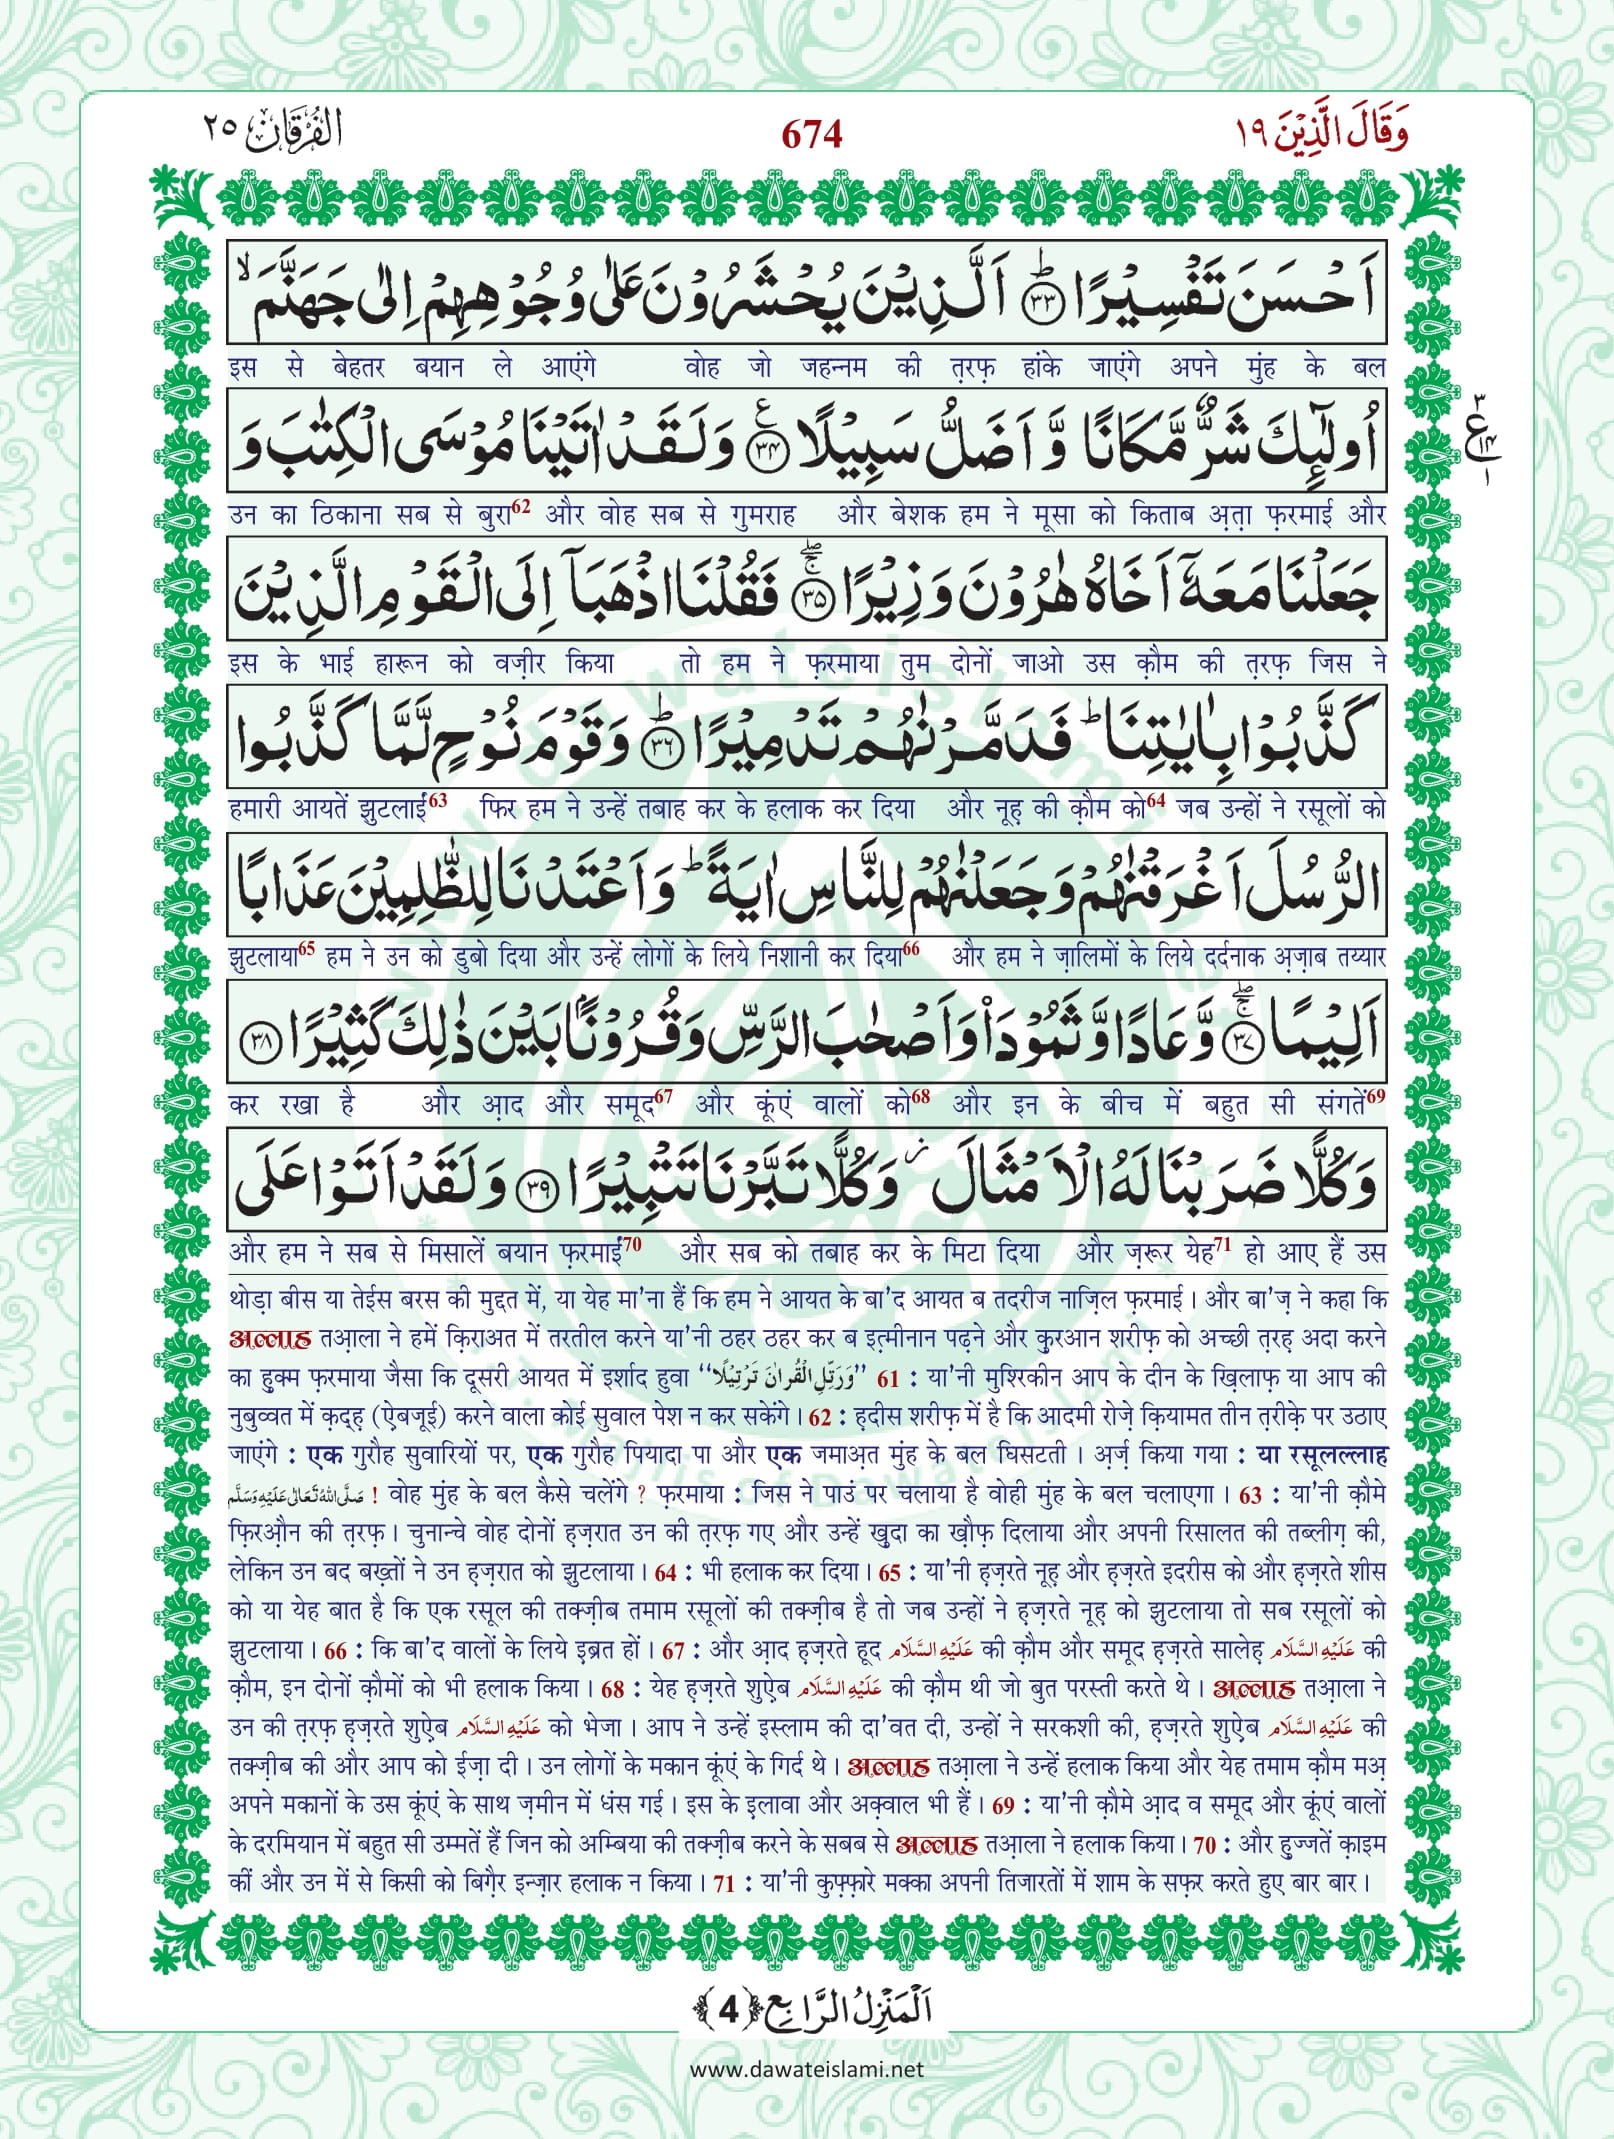 وَقَالَ الَّذِيْنَ ١٩
674
الْفُرْقَان ٢٥
اَحْسَنَ تَفْسِيْرًا ؕ﴿٣٣﴾ اَلَّذِيْنَ يُحْشَرُوْنَ عَلٰى وُجُوْهِهِمْ اِلٰى جَهَنَّمَ ۙ
इस से बेहतर बयान ले आएंगे वोह जो जहन्नम की त़रफ़ हांके जाएंगे अपने मुंह के बल
اُولٰٓئِكَ شَرٌّ مَّكَانًا وَّ اَضَلُّ سَبِيْلًا ﴿٣٤﴾ ع وَ لَقَدْ اٰتَيْنَا مُوْسَى الْكِتٰبَ وَ
٣ ع ١٤ ١
उन का ठिकाना सब से बुरा62 और वोह सब से गुमराह और बेशक हम ने मूसा को किताब अ़त़ा फ़रमाई और
جَعَلْنَا مَعَهٗٓ اَخَاهُ هٰرُوْنَ وَزِيْرًا ۚۖ﴿٣٥﴾ فَقُلْنَا اذْهَبَاۤ اِلَى الْقَوْمِ الَّذِيْنَ
इस के भाई हारून को वज़ीर किया तो हम ने फ़रमाया तुम दोनों जाओ उस क़ौम की त़रफ़ जिस ने
كَذَّبُوْا بِاٰيٰتِنَا ؕ فَدَمَّرْنٰهُمْ تَدْمِيْرًا ؕ﴿٣٦﴾ وَ قَوْمَ نُوْحٍ لَّمَّا كَذَّبُوا
हमारी आयतें झुटलाईं63 फिर हम ने उन्हें तबाह कर के हलाक कर दिया और नूह़ की क़ौम को64 जब उन्हों ने रसूलों को
الرُّسُلَ اَغْرَقْنٰهُمْ وَ جَعَلْنٰهُمْ لِلنَّاسِ اٰيَةً ؕ وَ اَعْتَدْنَا لِلظّٰلِمِيْنَ عَذَابًا
झुटलाया65 हम ने उन को डुबो दिया और उन्हें लोगों के लिये निशानी कर दिया66 और हम ने ज़ालिमों के लिये दर्दनाक अ़ज़ाब तय्यार
اَلِيْمًا ۚۖ﴿٣٧﴾ وَّ عَادًا وَّ ثَمُوْدَا۠ وَ اَصْحٰبَ الرَّسِّ وَ قُرُوْنًۢا بَيْنَ ذٰلِكَ كَثِيْرًا ﴿٣٨﴾
कर रखा है और अ़ाद और समूद67 और कूंएं वालों को68 और इन के बीच में बहुत सी संगतें69
وَ كُلًّا ضَرَبْنَا لَهُ الْاَمْثَالَ ؗ وَ كُلًّا تَبَّرْنَا تَتْبِيْرًا ﴿٣٩﴾ وَ لَقَدْ اَتَوْا عَلَى
और हम ने सब से मिसालें बयान फ़रमाईं70 और सब को तबाह कर के मिटा दिया और ज़रूर येह71 हो आए हैं उस
थोड़ा बीस या तेईस बरस की मुद्दत में, या येह मा'ना हैं कि हम ने आयत के बा'द आयत ब तदरीज नाज़िल फ़रमाई । और बा'ज़ ने कहा कि
अल्लाह तआ़ला ने हमें क़िराअत में तरतील करने या'नी ठहर ठहर कर ब इत़्मीनान पढ़ने और क़ुरआन शरीफ़ को अच्छी त़रह़ अदा करने
का ह़ुक्म फ़रमाया जैसा कि दूसरी आयत में इर्शाद हुवा “وَرَتِّلِ الْقُرْاٰنَ تَرْتِيْلًا” 61 : या'नी मुश्रिकीन आप के दीन के ख़िलाफ़ या आप की
नुबुव्वत में क़द्ह़ (ऐबजूई) करने वाला कोई सुवाल पेश न कर सकेंगे । 62 : ह़दीस शरीफ़ में है कि आदमी रोज़े क़ियामत तीन त़रीक़े पर उठाए
जाएंगे : एक गुरौह सुवारियों पर, एक गुरौह पियादा पा और एक जमाअ़त मुंह के बल घिसटती । अ़र्ज़ किया गया : या रसूलल्लाह
صَلَّى اللهُ تَعَالٰى عَلَيْهِ وَسَلَّم ! वोह मुंह के बल कैसे चलेंगे ? फ़रमाया : जिस ने पाउं पर चलाया है वोही मुंह के बल चलाएगा । 63 : या'नी क़ौमे
फ़िरऔ़न की त़रफ़ । चुनान्चे वोह दोनों ह़ज़रात उन की त़रफ़ गए और उन्हें ख़ुदा का ख़ौफ़ दिलाया और अपनी रिसालत की तब्लीग़ की,
लेकिन उन बद बख़्तों ने उन ह़ज़रात को झुटलाया । 64 : भी हलाक कर दिया । 65 : या'नी ह़ज़रते नूह़ और ह़ज़रते इदरीस को और ह़ज़रते शीस
को या येह बात है कि एक रसूल की तक्ज़ीब तमाम रसूलों की तक्ज़ीब है तो जब उन्हों ने ह़ज़रते नूह़ को झुटलाया तो सब रसूलों को
झुटलाया । 66 : कि बा'द वालों के लिये इ़ब्रत हों । 67 : और अ़ाद ह़ज़रते हूद عَلَيْهِ السَّلَام की क़ौम और समूद ह़ज़रते सालेह़ عَلَيْهِ السَّلَام की
क़ौम, इन दोनों क़ौमों को भी हलाक किया । 68 : येह ह़ज़रते शुऐ़ब عَلَيْهِ السَّلَام की क़ौम थी जो बुत परस्ती करते थे । अल्लाह तआ़ला ने
उन की त़रफ़ ह़ज़रते शुऐ़ब عَلَيْهِ السَّلَام को भेजा । आप ने उन्हें इस्लाम की दा'वत दी, उन्हों ने सरकशी की, ह़ज़रते शुऐ़ब عَلَيْهِ السَّلَام की
तक्ज़ीब की और आप को ईज़ा दी । उन लोगों के मकान कूंएं के गिर्द थे । अल्लाह तआ़ला ने उन्हें हलाक किया और येह तमाम क़ौम मअ़
अपने मकानों के उस कूंएं के साथ ज़मीन में धंस गई । इस के इ़लावा और अक़्वाल भी हैं । 69 : या'नी क़ौमे अ़ाद व समूद और कूंएं वालों
के दरमियान में बहुत सी उम्मतें हैं जिन को अम्बिया की तक्ज़ीब करने के सबब से अल्लाह तआ़ला ने हलाक किया । 70 : और ह़ुज्जतें क़ाइम
कीं और उन में से किसी को बिग़ैर इन्ज़ार हलाक न किया । 71 : या'नी कुफ़्फ़ारे मक्का अपनी तिजारतों में शाम के सफ़र करते हुए बार बार ।
اَلْمَنْزِلُ الرَّابِع ﴿4﴾
www.dawateislami.net